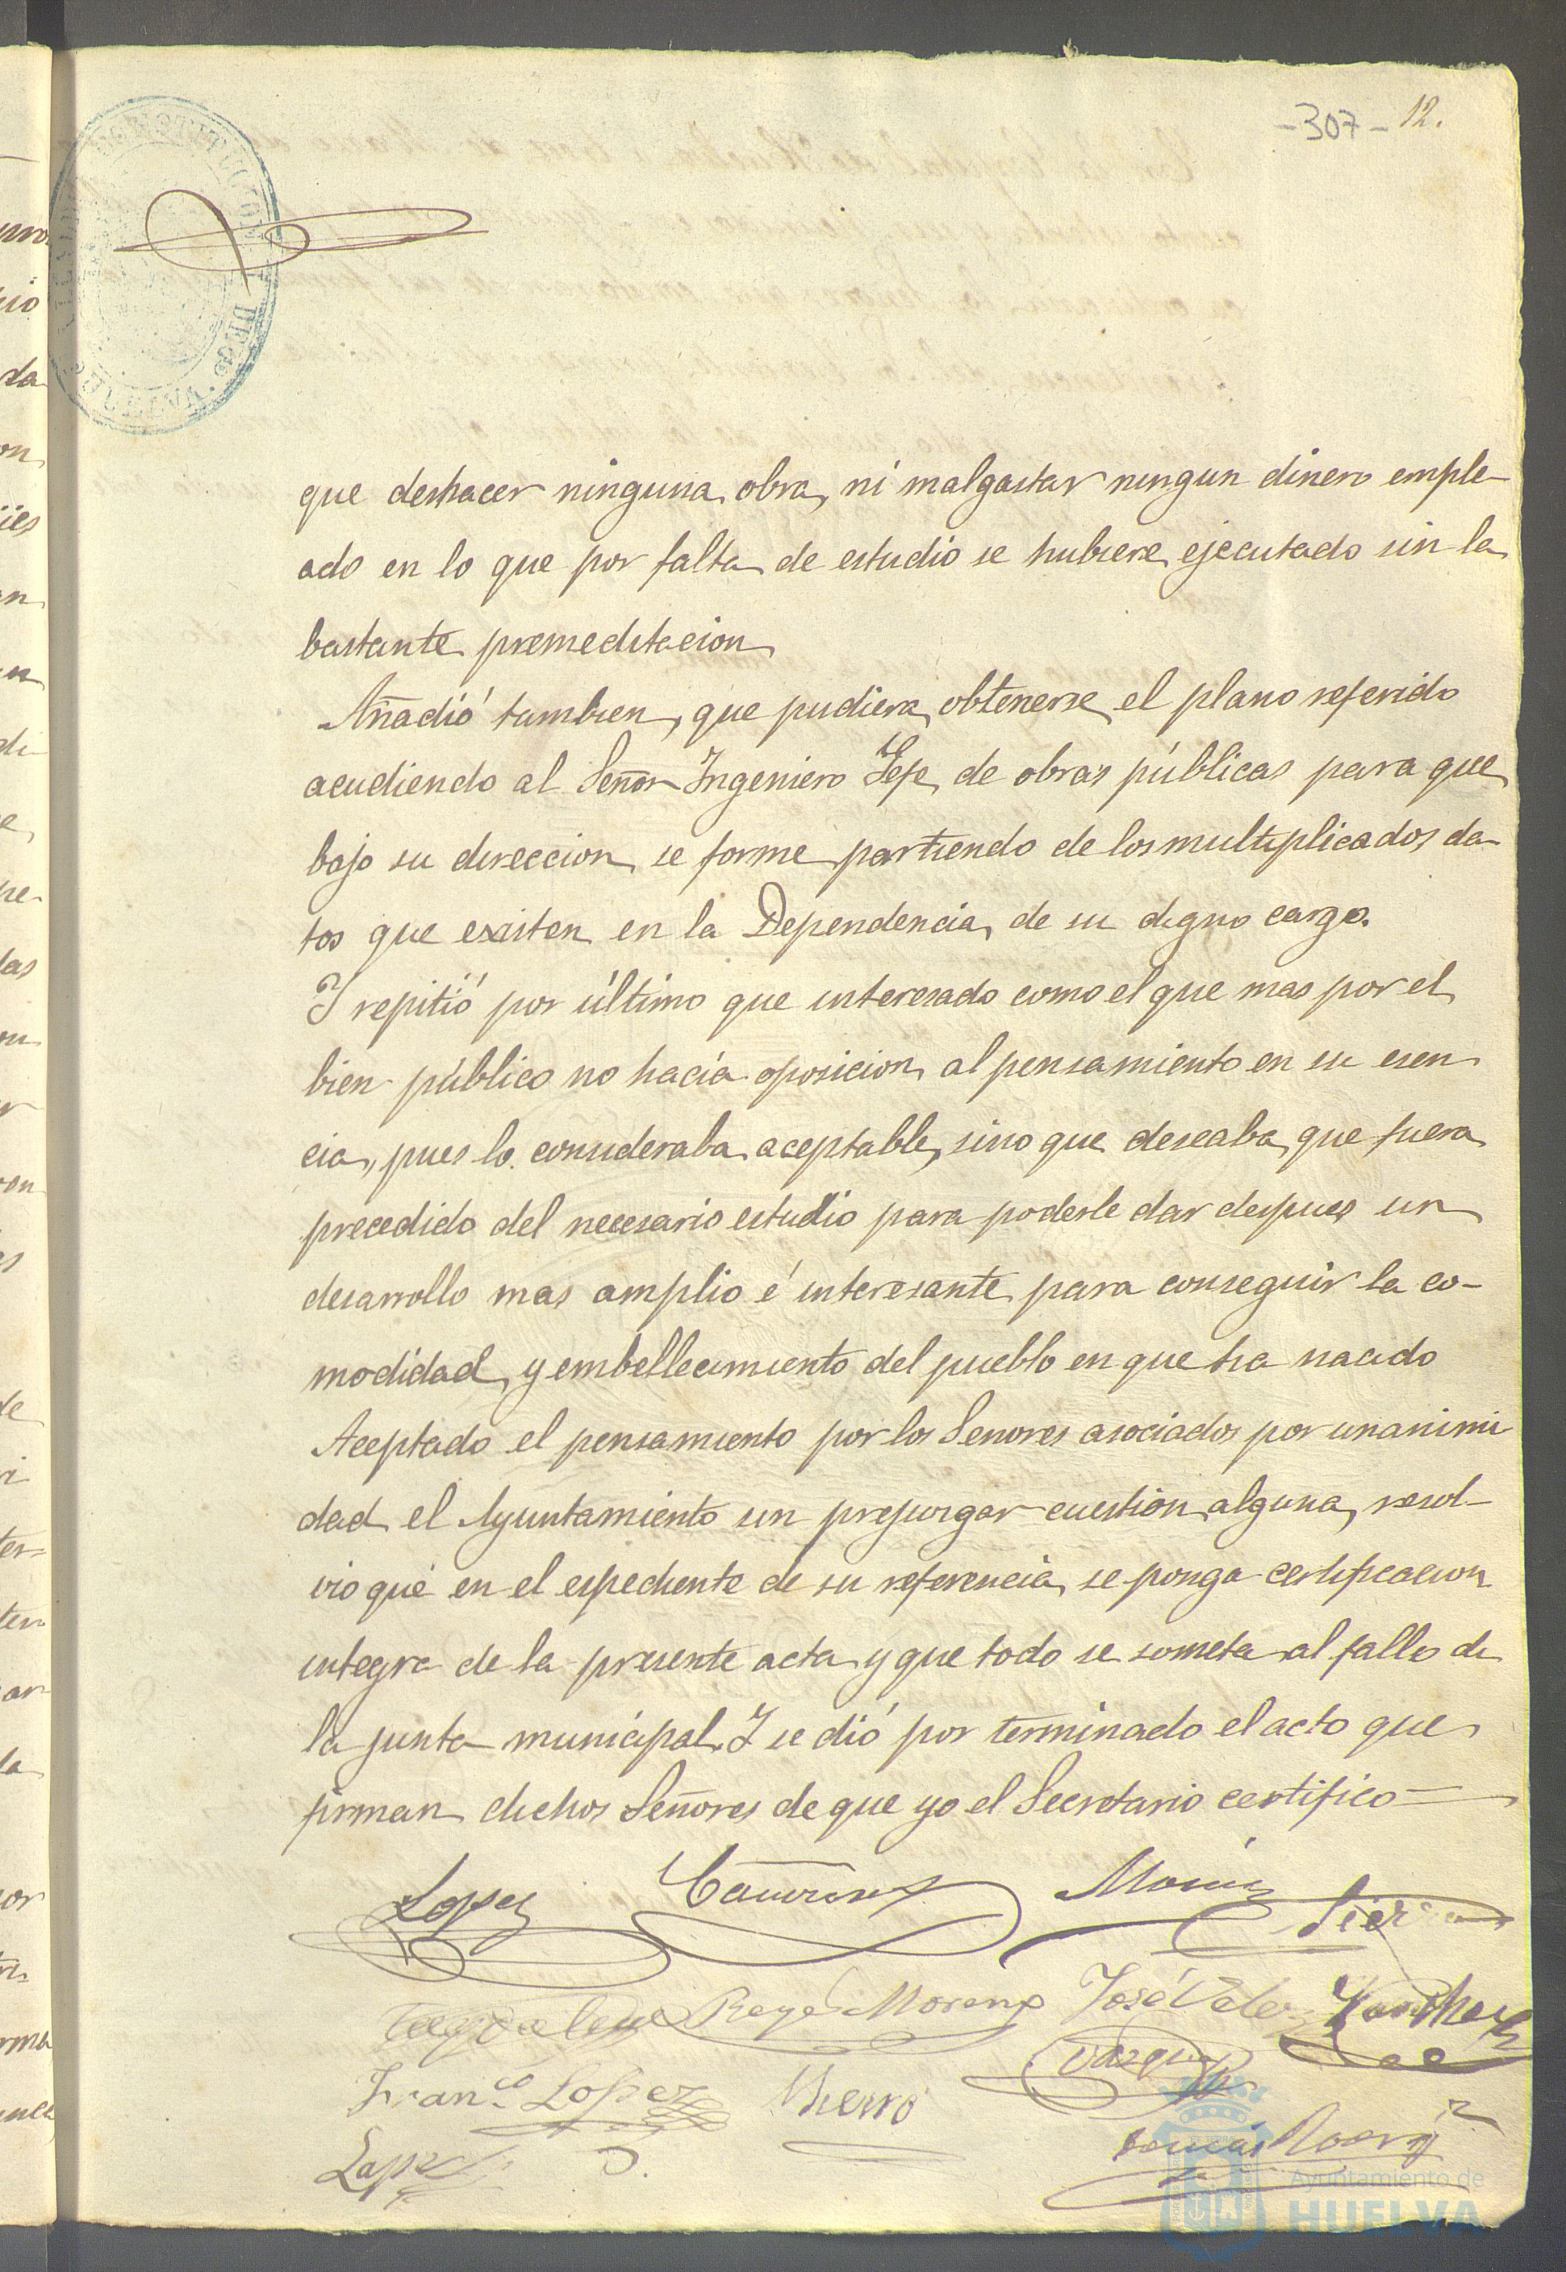 -307- 12.
que deshacer ninguna obra, ni malgastar ningun dinero emple-
ado en lo que por falta de estudio se hubiere ejecutado sin la
bastante premeditacion
Añadió tambien, que pudiera obtenerse el plano referido
acudiendo al Señor Ingeniero Jefe de obras públicas para que
bajo su direccion se forme partiendo de los multiplicados da-
tos que existen en la Dependencia de su digno cargo.
Y repitió por último que interesado como el que mas por el
bien público no hacía oposicion al pensamiento en su esen
cia, pues lo consideraba aceptable, sino que deseaba que fuera
precedido del necesario estudio para poderle dar despues un
desarrollo mas amplio é interesante para conseguir la co-
modidad y embellecimiento del pueblo en que ha nacido
Aceptado el pensamiento por los Senores asociados por unanimi
dad el Ayuntamiento sin prejuzgar cuestion alguna, resol-
vió que en el espediente de su referencia se ponga certificacion
integra de la presente acta y que todo se someta al fallo de
la junta municipal. Y se dió por terminado el acto que
firman dichos Señores de que yo el Secretario certifico=
Lopez
Sierra
Reyes Moreno José Sanchez
Vazquez
Franco Lopez Hierro
Lopez
Tomás
Ayuntamiento de
HUELVA